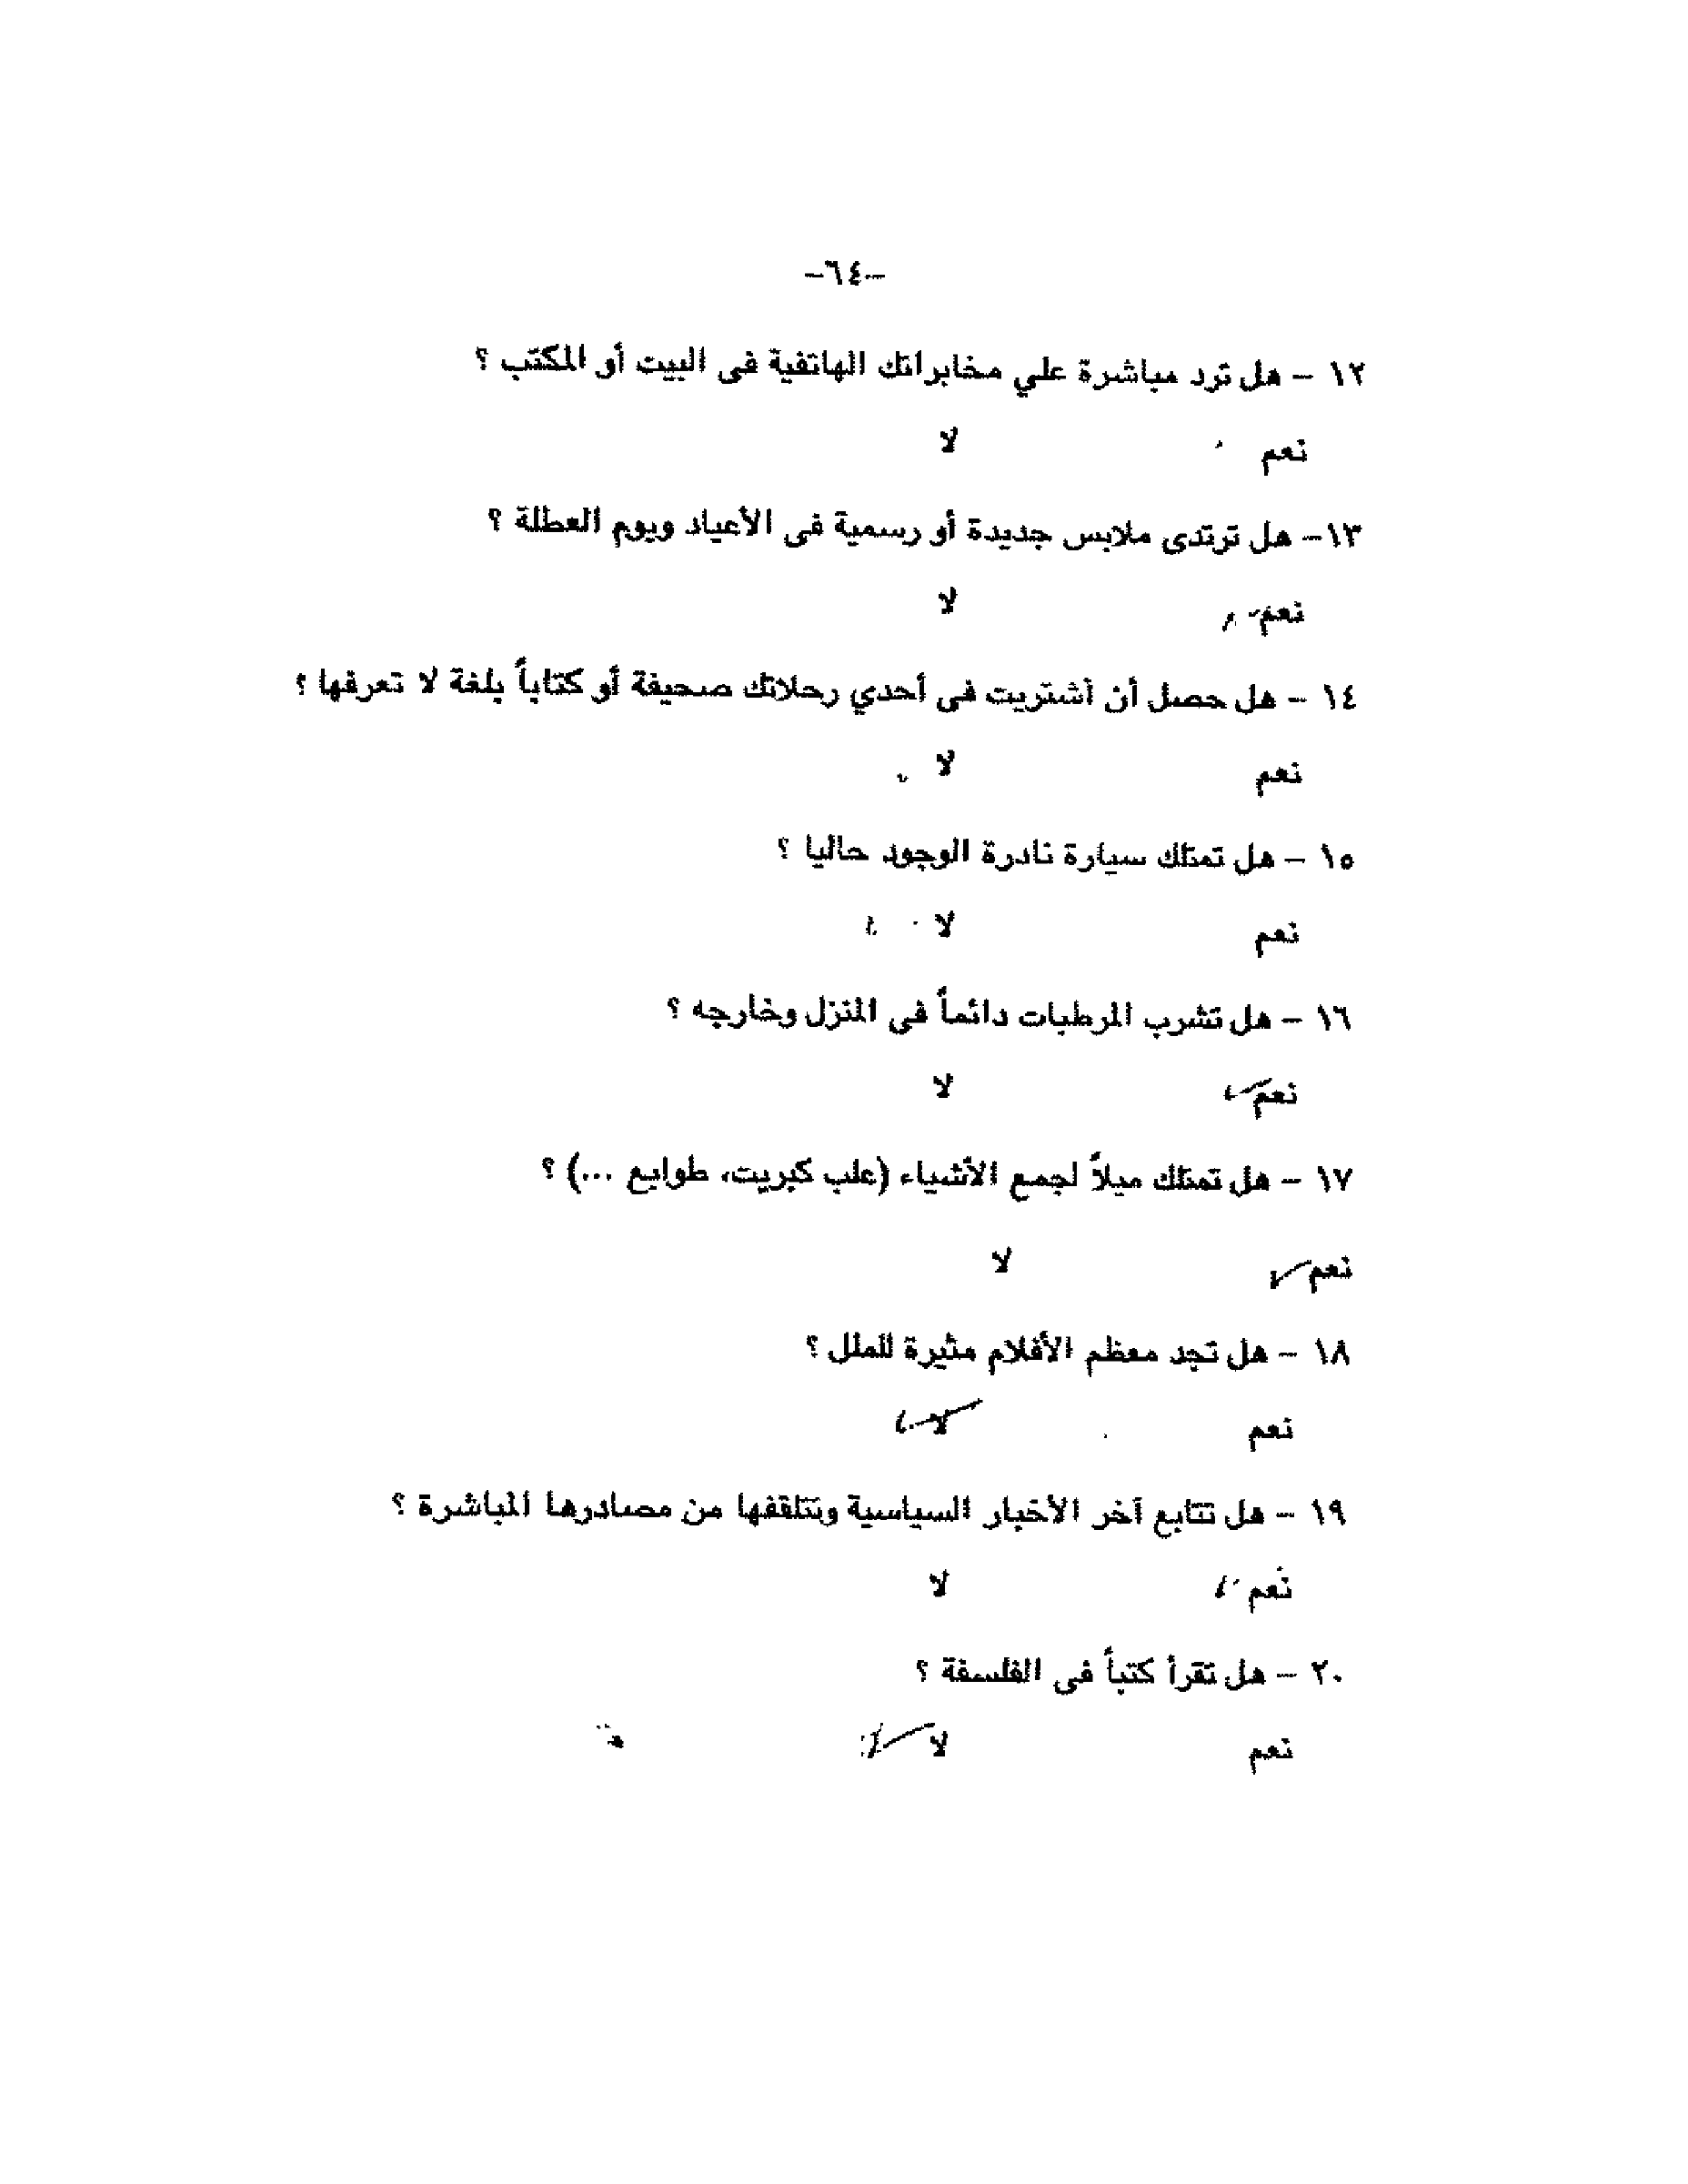 -٦٤-
١٢ - هل ترد مباشرة علي مخابراتك الهاتفية فى البيت أو المكتب ؟
نعم لا
١٣- هل ترتدى ملابس جديدة أو رسمية فى الأعياد ويوم العطلة ؟
نعم لا
١٤ - هل حصل أن أشتريت فى أحدي رحلاتك صحيفة أو كتاباً بلغة لا تعرفها ؟
نعم لا
١٥ - هل تمتلك سيارة نادرة الوجود حاليا ؟
نعم لا
١٦ - هل تشرب المرطبات دائماً فى المنزل وخارجه ؟
نعم لا
١٧ - هل تمتلك ميلاً لجمع الأشياء (علب كبريت، طوابع ...) ؟
نعم لا
١٨ - هل تجد معظم الأفلام مثيرة للملل ؟
نعم لا
١٩ - هل تتابع آخر الأخبار السياسية وتتلقفها من مصادرها المباشرة ؟
نعم لا
٢٠ - هل تقرأ كتباً فى الفلسفة ؟
نعم لا